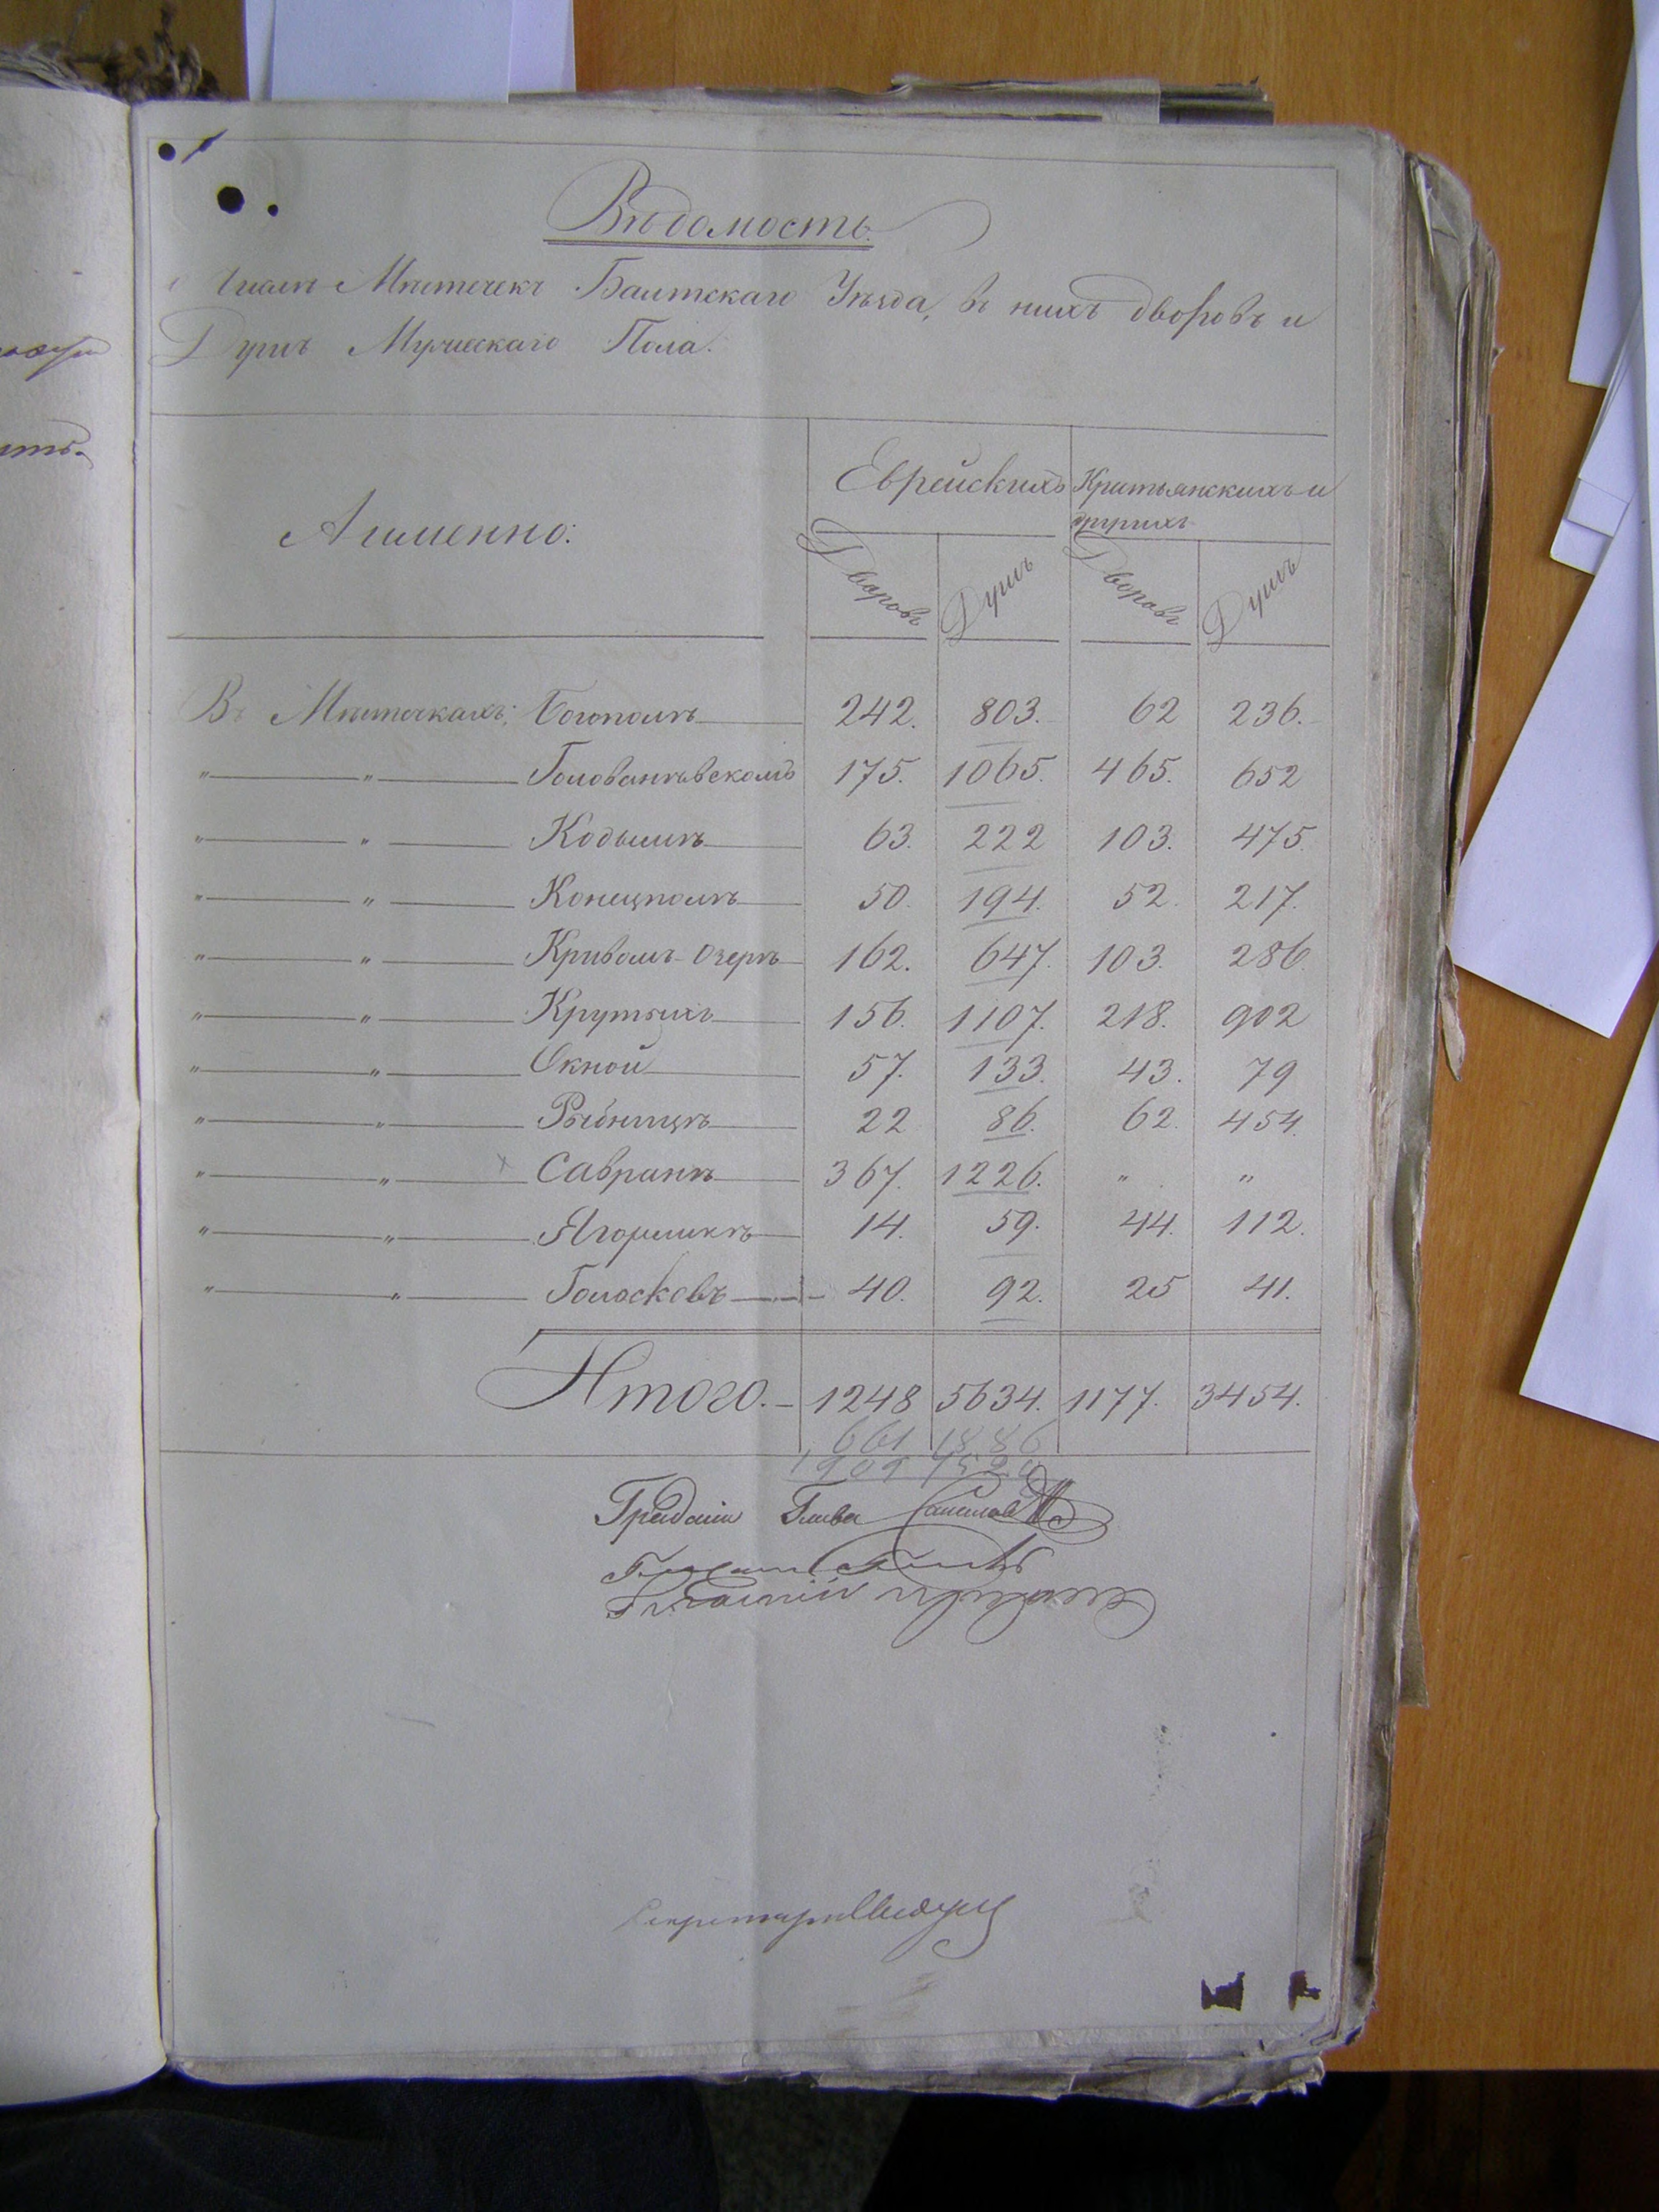 Вѣдомость.
о числѣ Мѣстечекъ Балтскаго Уѣзда, въ нихъ дворовъ и
Душъ Мужескаго Пола.
А именно:
Еврейскихъ
Кристьянскихъ и
другихъ
Дворовъ
Душъ
Дворовъ
Душъ
Въ Мѣстечкахъ: Богополѣ 242. 803. 62 236.
" " Голованѣвскомъ 175. 1065. 465. 652
" " Кодымѣ 63. 222 103. 475.
" " Конецполѣ 50. 194. 52. 217.
" " Кривомъ-Озерѣ 162. 647. 103. 286.
" " Крутыхъ 156. 1107. 218. 902
" " Окной 57. 133. 43. 79
" " Рыбницѣ 22 86. 62. 454.
" " Савранѣ 367. 1226. " "
" " Ягорлыкѣ 14. 59. 44. 112.
" " Голосковѣ 40. 92. 25 41.
Итого. 1248 5634. 1177. 3454.
661 1886
1909 7520
Градский Глава
Секретарь